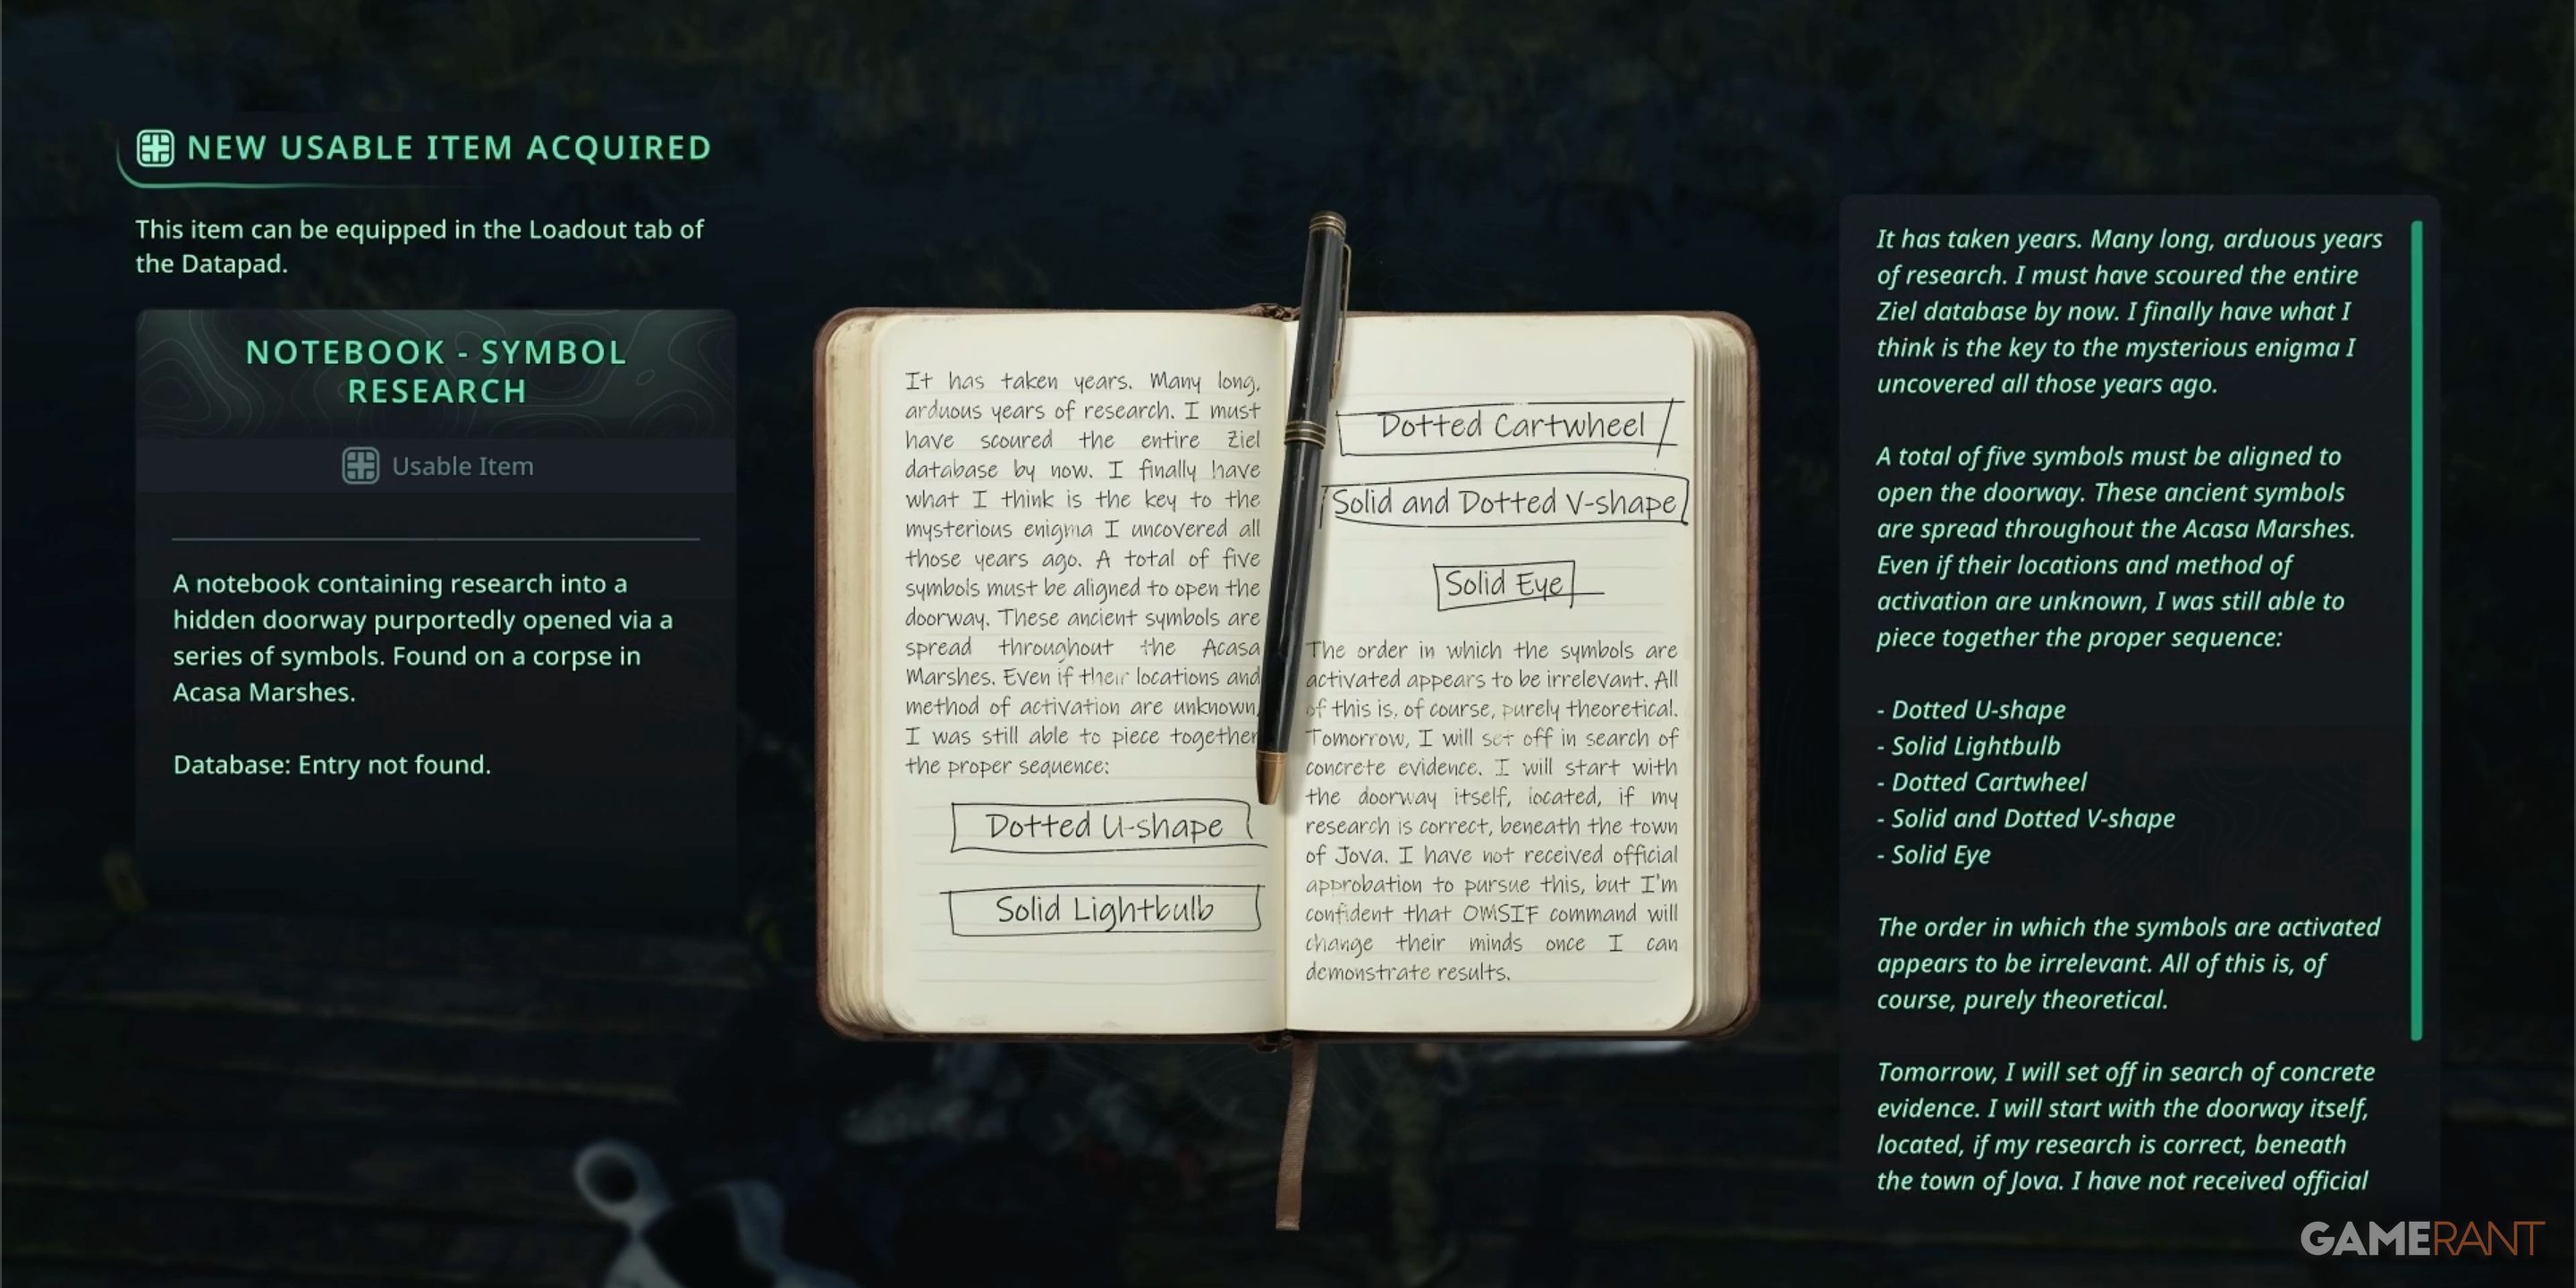 NEW USABLE ITEM ACQUIRED
This item can be equipped in the Loadout tab of
the Datapad.
NOTEBOOK - SYMBOL
RESEARCH
Usable Item
A notebook containing research into a
hidden doorway purportedly opened via a
series of symbols. Found on a corpse in
Acasa Marshes.
Database: Entry not found.
It has taken years. Many long,
arduous years of research. I must
have scoured the entire Ziel
database by now. I finally have
what I think is the key to the
mysterious enigma I uncovered all
those years ago. A total of five
symbols must be aligned to open the
doorway. These ancient symbols are
spread throughout the Acasa
Marshes. Even if their locations and
method of activation are unknown,
I was still able to piece together
the proper sequence:
Dotted U-shape
Solid Lightbulb
Dotted Cartwheel
Solid and Dotted V-shape
Solid Eye
The order in which the symbols are
activated appears to be irrelevant. All
of this is, of course, purely theoretical.
Tomorrow, I will set off in search of
concrete evidence. I will start with
the doorway itself, located, if my
research is correct, beneath the town
of Jova. I have not received official
approbation to pursue this, but I'm
confident that OWSIF command will
change their minds once I can
demonstrate results.
It has taken years. Many long, arduous years
of research. I must have scoured the entire
Ziel database by now. I finally have what I
think is the key to the mysterious enigma I
uncovered all those years ago.
A total of five symbols must be aligned to
open the doorway. These ancient symbols
are spread throughout the Acasa Marshes.
Even if their locations and method of
activation are unknown, I was still able to
piece together the proper sequence:
- Dotted U-shape
- Solid Lightbulb
- Dotted Cartwheel
- Solid and Dotted V-shape
- Solid Eye
The order in which the symbols are activated
appears to be irrelevant. All of this is, of
course, purely theoretical.
Tomorrow, I will set off in search of concrete
evidence. I will start with the doorway itself,
located, if my research is correct, beneath
the town of Jova. I have not received official
GAMERANT